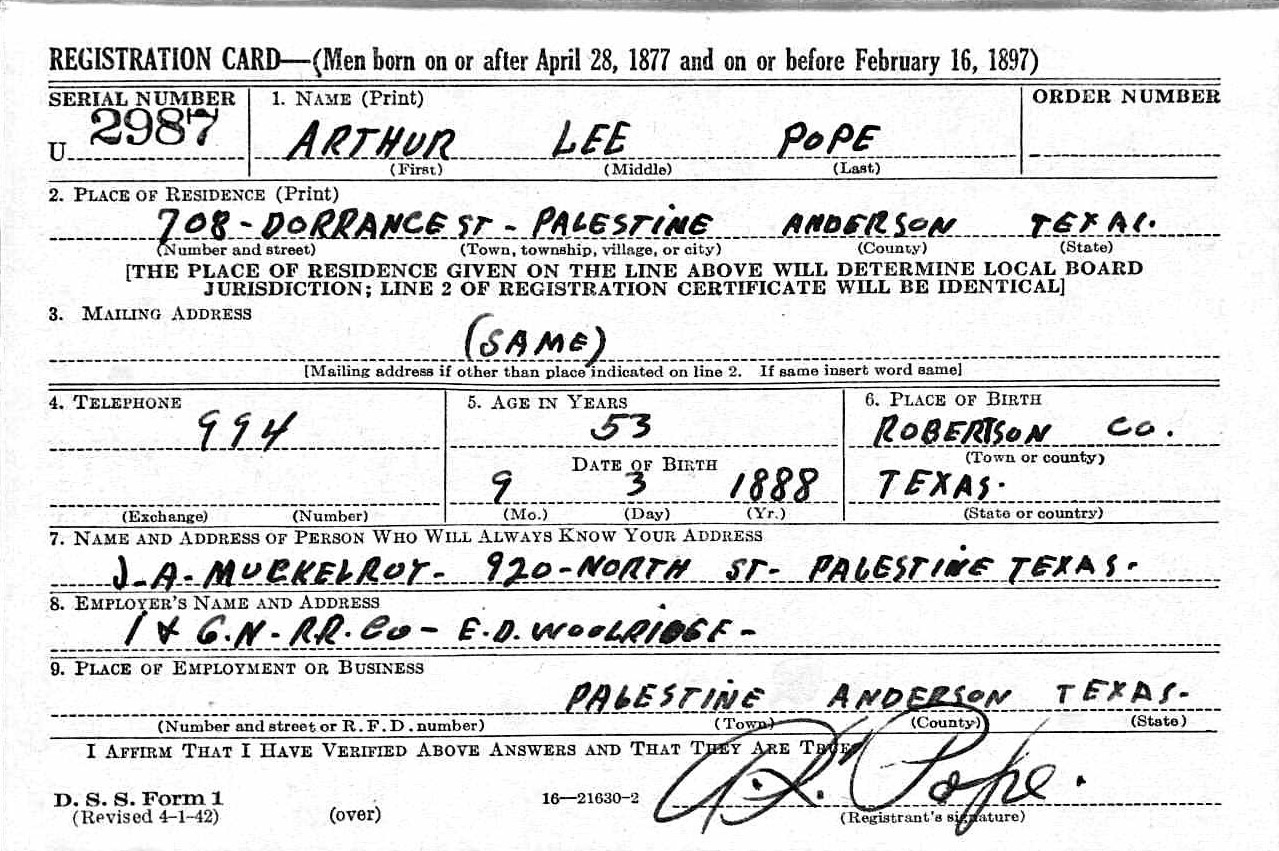 REGISTRATION CARD—(Men born on or after April 28, 1877 and on or before February 16, 1897)
SERIAL NUMBER 1. NAME (Print) ORDER NUMBER
U 2987 ARTHUR LEE POPE
(First) (Middle) (Last)
2. PLACE OF RESIDENCE (Print)
708 - DORRANCE ST - PALESTINE ANDERSON TEXAS.
(Number and street) (Town, township, village, or city) (County) (State)
[THE PLACE OF RESIDENCE GIVEN ON THE LINE ABOVE WILL DETERMINE LOCAL BOARD
JURISDICTION; LINE 2 OF REGISTRATION CERTIFICATE WILL BE IDENTICAL]
3. MAILING ADDRESS
(SAME)
[Mailing address if other than place indicated on line 2. If same insert word same]
4. TELEPHONE 5. AGE IN YEARS 6. PLACE OF BIRTH
994 53 ROBERTSON CO.
DATE OF BIRTH (Town or county)
9 3 1888 TEXAS.
(Exchange) (Number) (Mo.) (Day) (Yr.) (State or country)
7. NAME AND ADDRESS OF PERSON WHO WILL ALWAYS KNOW YOUR ADDRESS
J-A-MUCKELROY- 920-NORTH ST- PALESTINE TEXAS.
8. EMPLOYER'S NAME AND ADDRESS
I & G.N-RR.Co- E.D. WOOLRIDGE-
9. PLACE OF EMPLOYMENT OR BUSINESS
PALESTINE ANDERSON TEXAS-
(Number and street or R. F. D. number) (Town) (County) (State)
I AFFIRM THAT I HAVE VERIFIED ABOVE ANSWERS AND THAT THEY ARE TRUE
D. S. S. Form 1 16—21630-2 A.L. Pope.
(Revised 4-1-42) (over) (Registrant's signature)